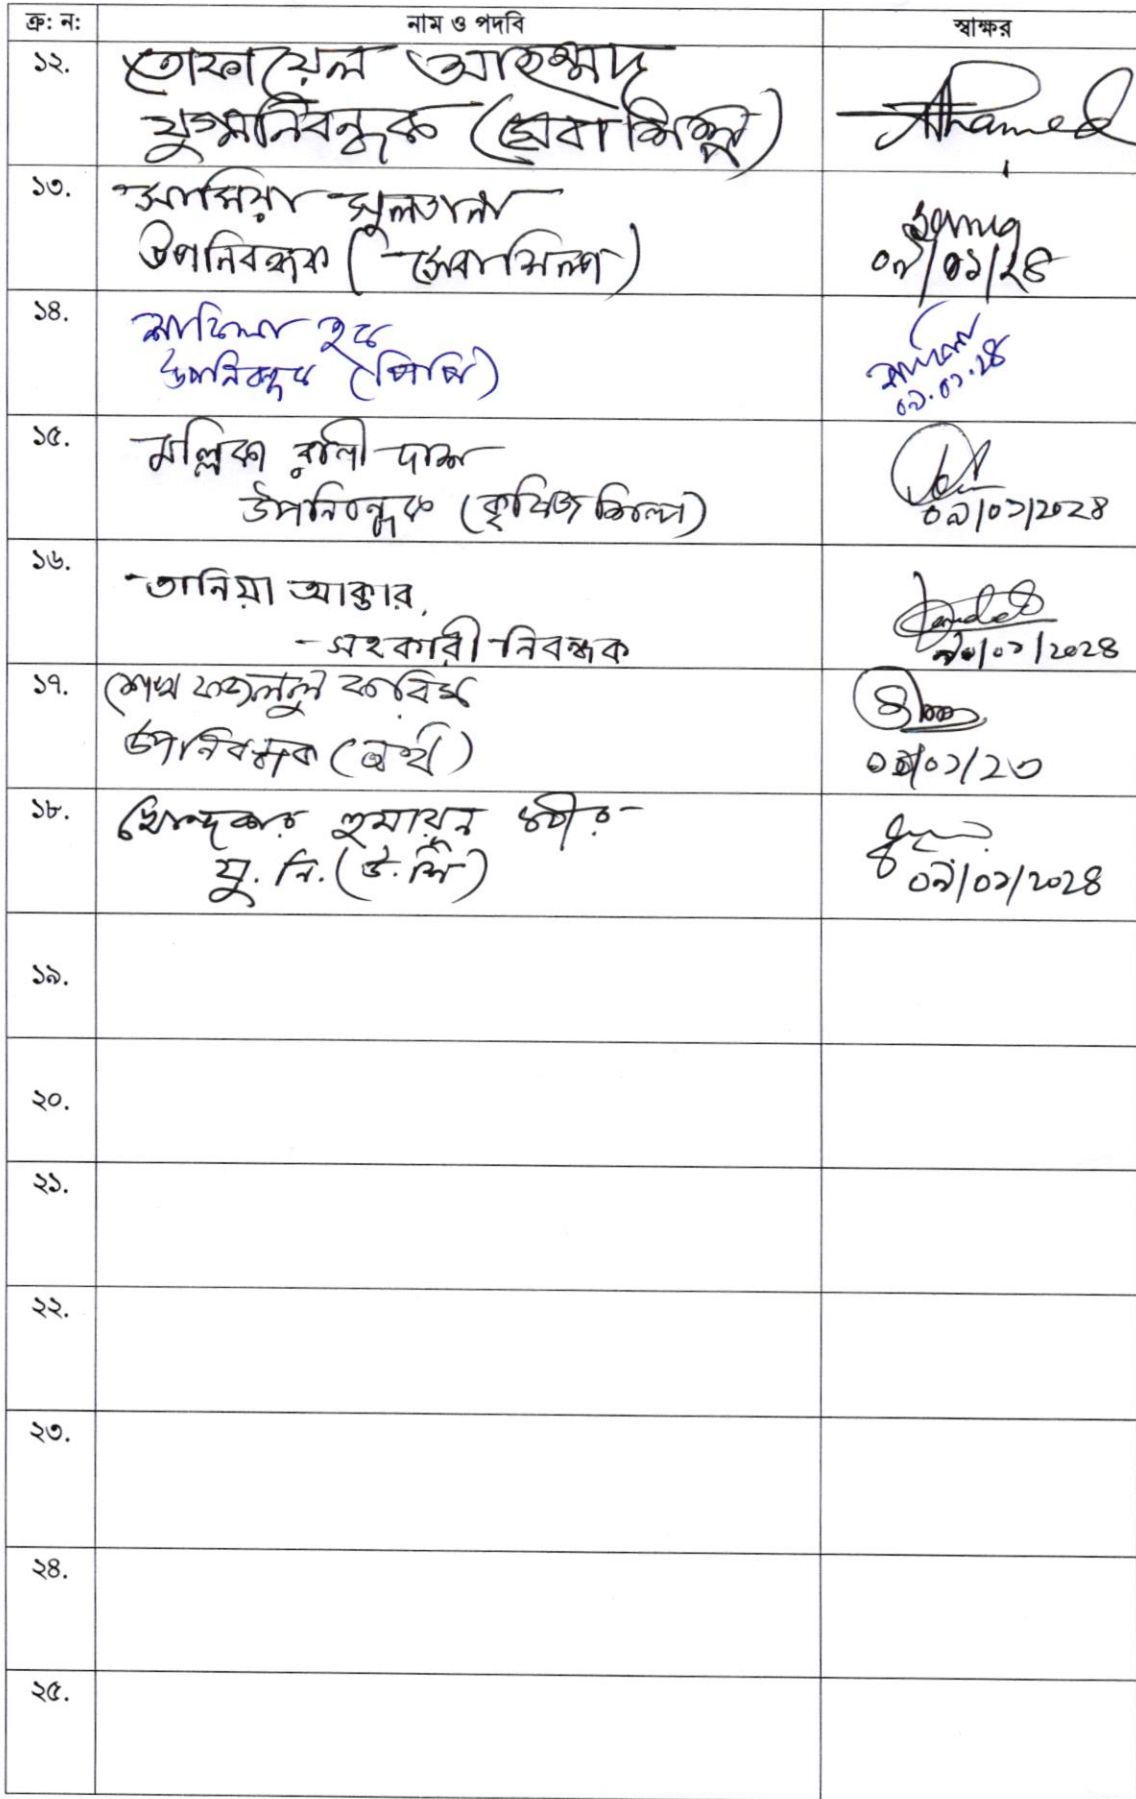 ক্র: ন: নাম ও পদবি স্বাক্ষর
১২. তোফায়েল আহম্মাদ
যুগ্মনিবন্ধক (সেবা শিল্প) Ahamed
১৩. সামিয়া সুলতানা Samia
উপনিবন্ধক (সেবা শিল্প) ০৯/০১/২৪
১৪. শাহিলা হক
উপনিবন্ধক (পিপি) ০৯.০১.২৪
১৫. মল্লিকা রানী দাস
উপনিবন্ধক (কৃষিজ শিল্প) ০৯/০১/২০২৪
১৬. তানিয়া আক্তার,
সহকারী নিবন্ধক /০১/২০২৪
১৭. শেখ ফজলুল করিম
উপনিবন্ধক (অর্থ) /০১/২৩
১৮. খোন্দকার হুমায়ুন কবীর
যু. নি. (উ. শি) ০৯/০১/২০২৪
১৯.
২০.
২১.
২২.
২৩.
২৪.
২৫.